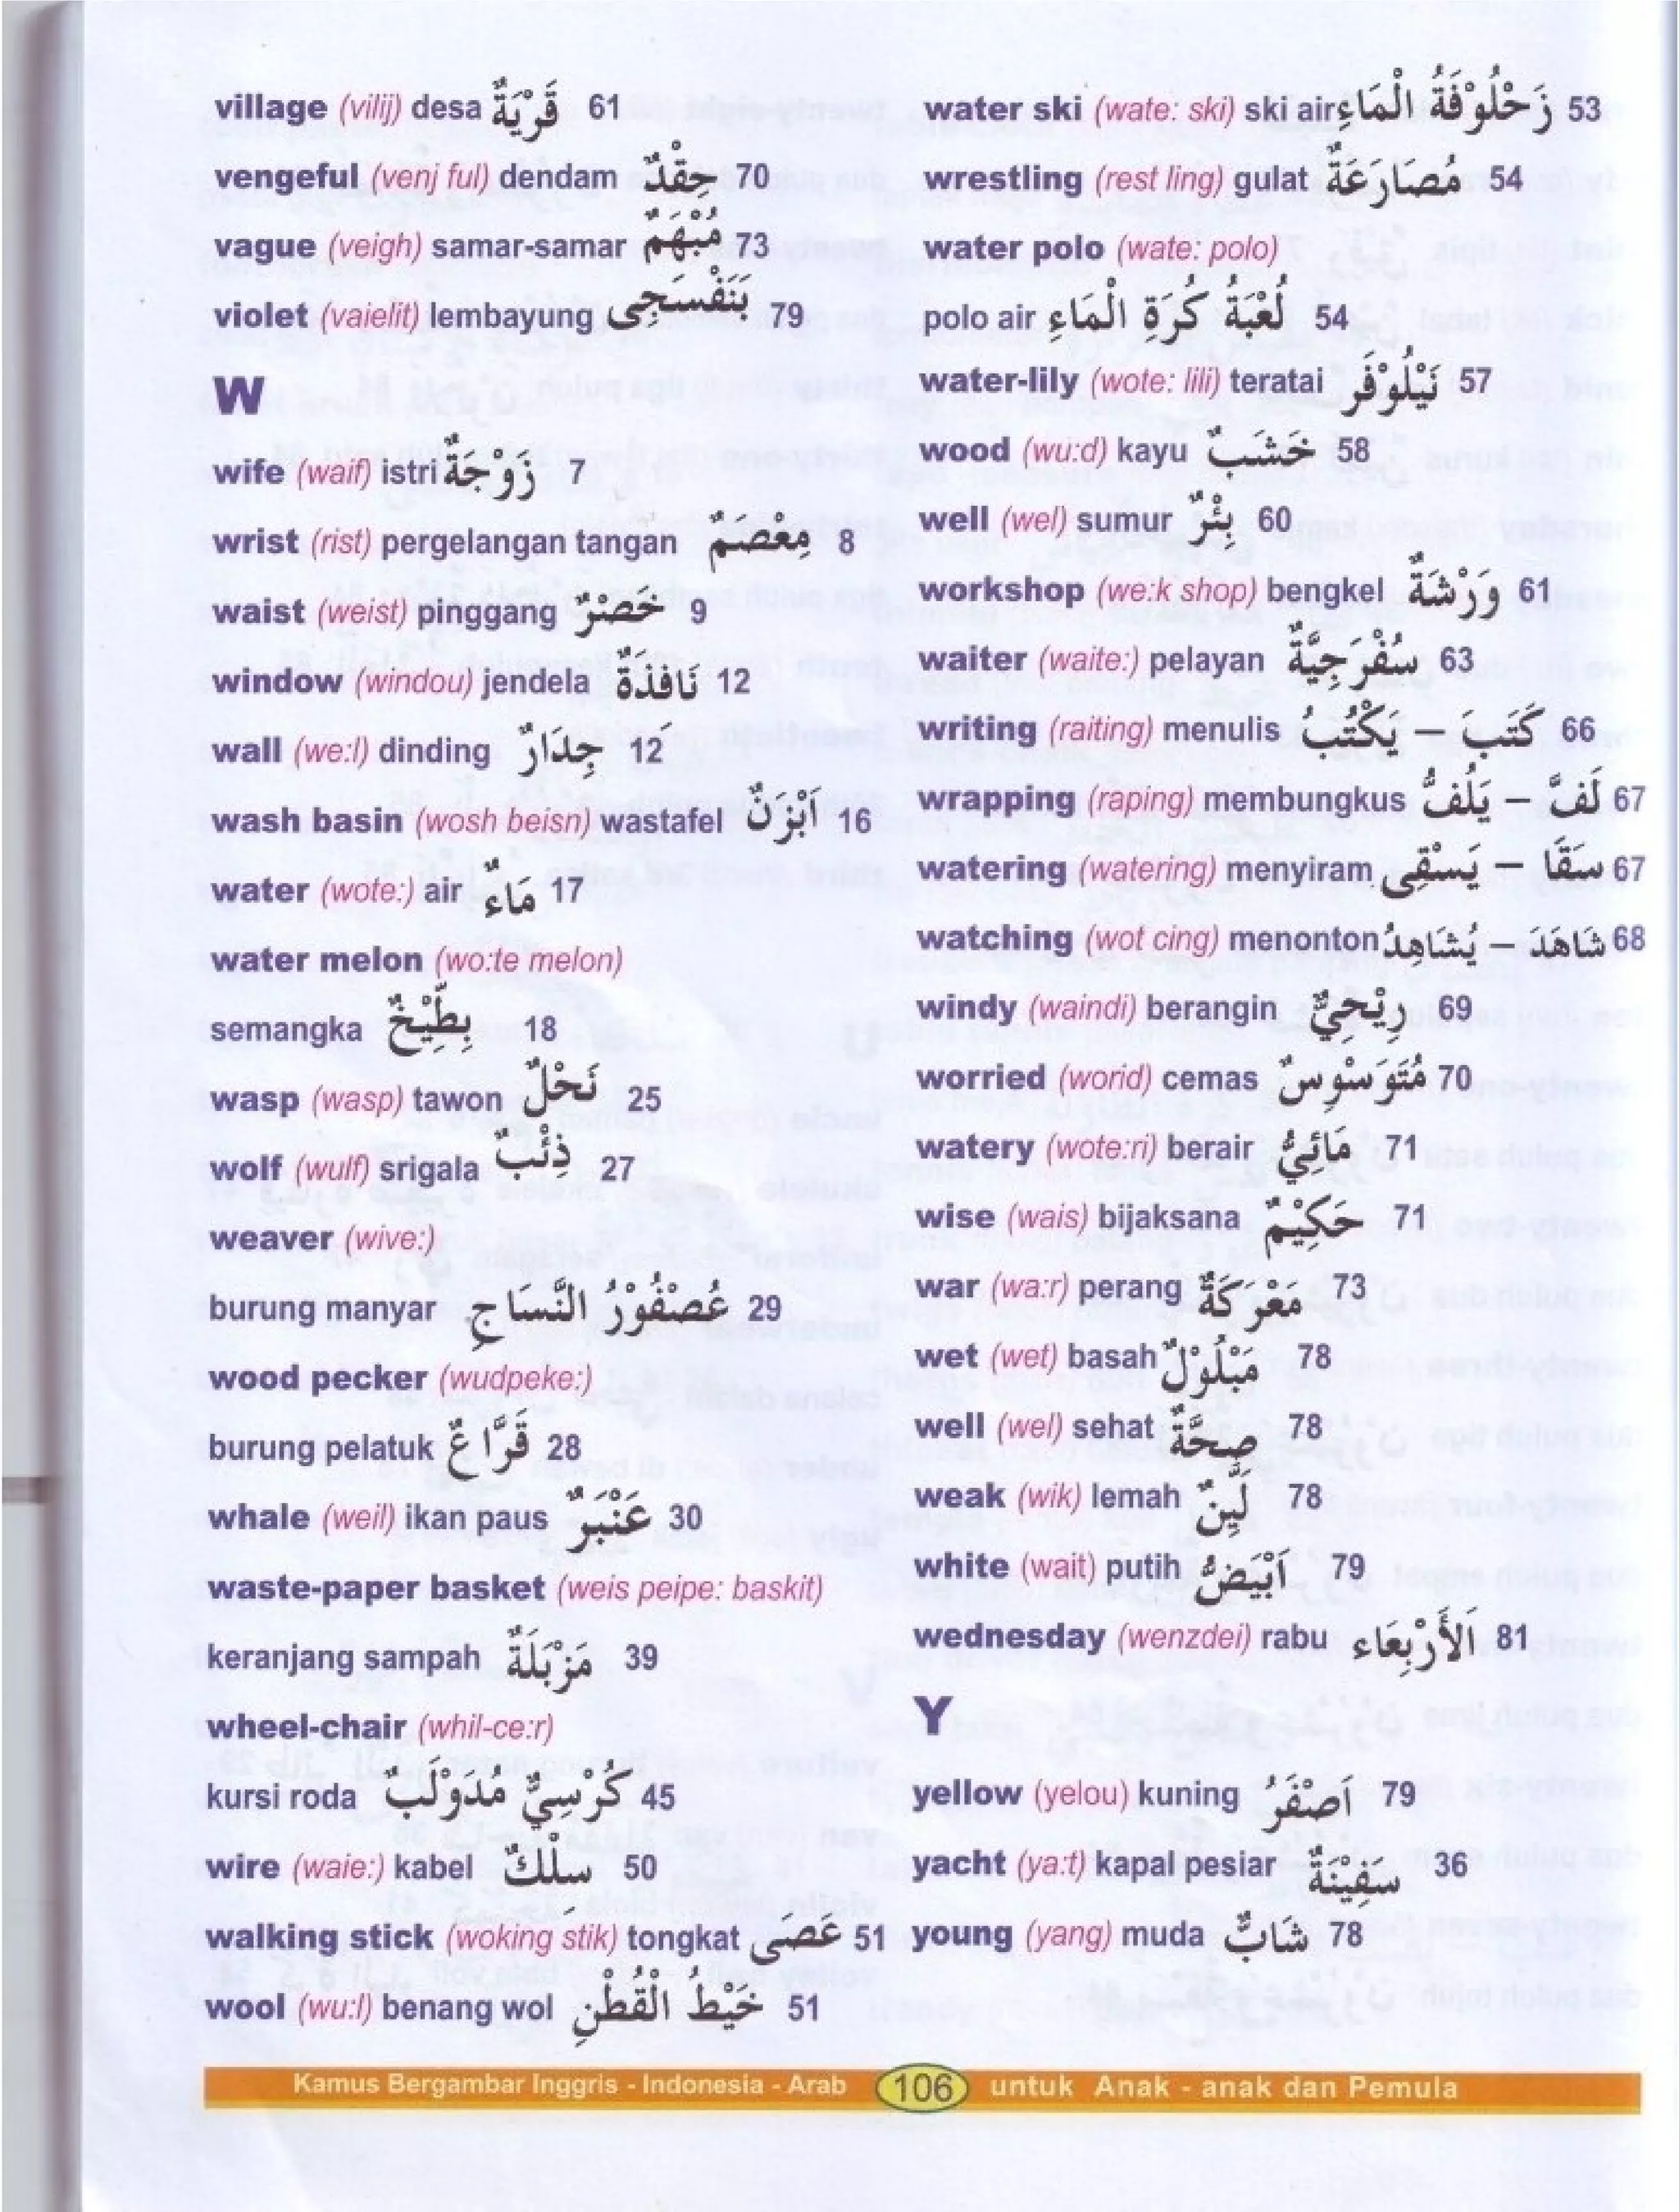 village (vilij) desa قَرْيَةٌ 61
vengeful (venj ful) dendam حِقْدٌ 70
vague (veigh) samar-samar مُبْهَمٌ 73
violet (vaielit) lembayung بَنَفْسَجِى 79
W
wife (waif) istri زَوْجَةٌ 7
wrist (rist) pergelangan tangan مِعْصَمٌ 8
waist (weist) pinggang خَصْرٌ 9
window (windou) jendela نَافَذَةٌ 12
wall (we:l) dinding جِدَارٌ 12
wash basin (wosh beisn) wastafel اَبْزَنٌ 16
water (wote:) air مَاءٌ 17
water melon (wo:te melon)
semangka بِطِّيْخٌ 18
wasp (wasp) tawon نَحْلٌ 25
wolf (wulf) srigala ذِئْبٌ 27
weaver (wive:)
burung manyar عُصْفُوْرُ النَّسَاجِ 29
wood pecker (wudpeke:)
burung pelatuk قَرَّاعٌ 28
whale (weil) ikan paus عَنْبَرٌ 30
waste-paper basket (weis peipe: baskit)
keranjang sampah مَزْبَلَةٌ 39
wheel-chair (whil-ce:r)
kursi roda كُرْسِيٌّ مُدَوْلَبٌ 45
wire (waie:) kabel سِلْكٌ 50
walking stick (woking stik) tongkat عَصَى 51
wool (wu:l) benang wol خَيْطُ الْقُطْنِ 51
water ski (wate: ski) ski air زَحْلُوْفَةُ الْمَاءِ 53
wrestling (rest ling) gulat مُصَارَعَةٌ 54
water polo (wate: polo)
polo air لُعْبَةُ كُرَةِ الْمَاءِ 54
water-lily (wote: lili) teratai نَيْلُوْفَر 57
wood (wu:d) kayu خَشَبٌ 58
well (wel) sumur بِئْرٌ 60
workshop (we:k shop) bengkel وَرْشَةٌ 61
waiter (waite:) pelayan سُفْرَجِيَّةٌ 63
writing (raiting) menulis كَتَبَ – يَكْتُبُ 66
wrapping (raping) membungkus لَفَّ – يَلُفُّ 67
watering (watering) menyiram سَقَا – يَسْقِى 67
watching (wot cing) menonton شَاهَدَ – يُشَاهِدُ 68
windy (waindi) berangin رِيْحِيٌّ 69
worried (worid) cemas مُتَوَسْوِسٌ 70
watery (wote:ri) berair مَائِيٌّ 71
wise (wais) bijaksana حَكِيْمٌ 71
war (wa:r) perang مَعْرَكَةٌ 73
wet (wet) basah مَبْلُوْلٌ 78
well (wel) sehat صِحَّةٌ 78
weak (wik) lemah لَيِّنٌ 78
white (wait) putih اَبْيَضُ 79
wednesday (wenzdei) rabu اَلأَرْبِعَاء 81
Y
yellow (yelou) kuning اَصْفَرُ 79
yacht (ya:t) kapal pesiar سَفِيْنَةٌ 36
young (yang) muda شَابٌّ 78
Kamus Bergambar Inggris - Indonesia - Arab 106 untuk Anak - anak dan Pemula